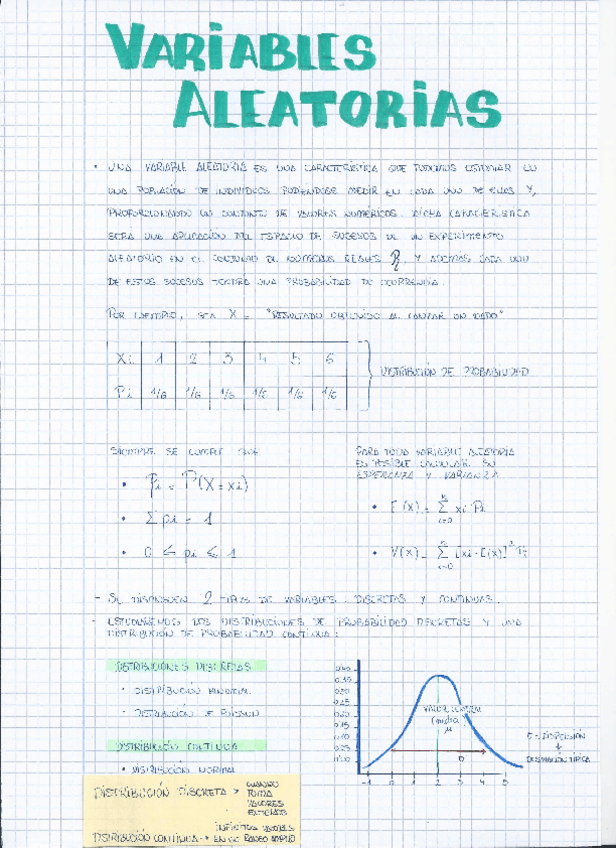 VARIABLES
ALEATORIAS
• UNA VARIABLE ALEATORIA ES UNA CARACTERÍSTICA QUE PODEMOS ESTUDIAR EN
UNA POBLACIÓN DE INDIVIDUOS PUDIÉNDOSE MEDIR EN CADA UNO DE ELLOS Y,
PROPORCIONANDO UN CONJUNTO DE VALORES NUMÉRICOS. DICHA CARACTERÍSTICA
SERÁ UNA APLICACIÓN DEL ESPACIO DE SUCESOS DE UN EXPERIMENTO
ALEATORIO EN EL CONJUNTO DE NÚMEROS REALES R, Y ADEMÁS CADA UNO
DE ESTOS SUCESOS TENDRÁ UNA PROBABILIDAD DE OCURRENCIA.
POR EJEMPLO, SEA X = "RESULTADO OBTENIDO AL LANZAR UN DADO"
Xi 1 2 3 4 5 6
Pi 1/6 1/6 1/6 1/6 1/6 1/6
DISTRIBUCIÓN DE PROBABILIDAD
SIEMPRE SE CUMPLE QUE
• pi = P(X=xi)
• Σ pi = 1
• 0 ≤ pi ≤ 1
PARA TODA VARIABLE ALEATORIA
ES POSIBLE CALCULAR SU
ESPERANZA Y VARIANZA
• E(X) = Σ xi·Pi
i=0
• V(X) = Σ [xi-E(x)]² Pi
i=0
- SE DISTINGUEN 2 TIPOS DE VARIABLES: DISCRETAS Y CONTINUAS.
- ESTUDIAREMOS DOS DISTRIBUCIONES DE PROBABILIDAD DISCRETAS Y UNA
DISTRIBUCIÓN DE PROBABILIDAD CONTINUA:
DISTRIBUCIONES DISCRETAS
• DISTRIBUCIÓN BINOMIAL
• DISTRIBUCIÓN DE POISSON
DISTRIBUCIÓN CONTINUA
• DISTRIBUCIÓN NORMAL
VALOR CENTRAL
(media)
μ
σ
σ = DISPERSIÓN
↓
DESVIACIÓN TÍPICA
-1 0 1 2 3 4 5
DISTRIBUCIÓN DISCRETA → CUANDO
TOMA
VALORES
ENTEROS
INFINITOS VALORES
DISTRIBUCIÓN CONTINUA → EN ESE RANGO